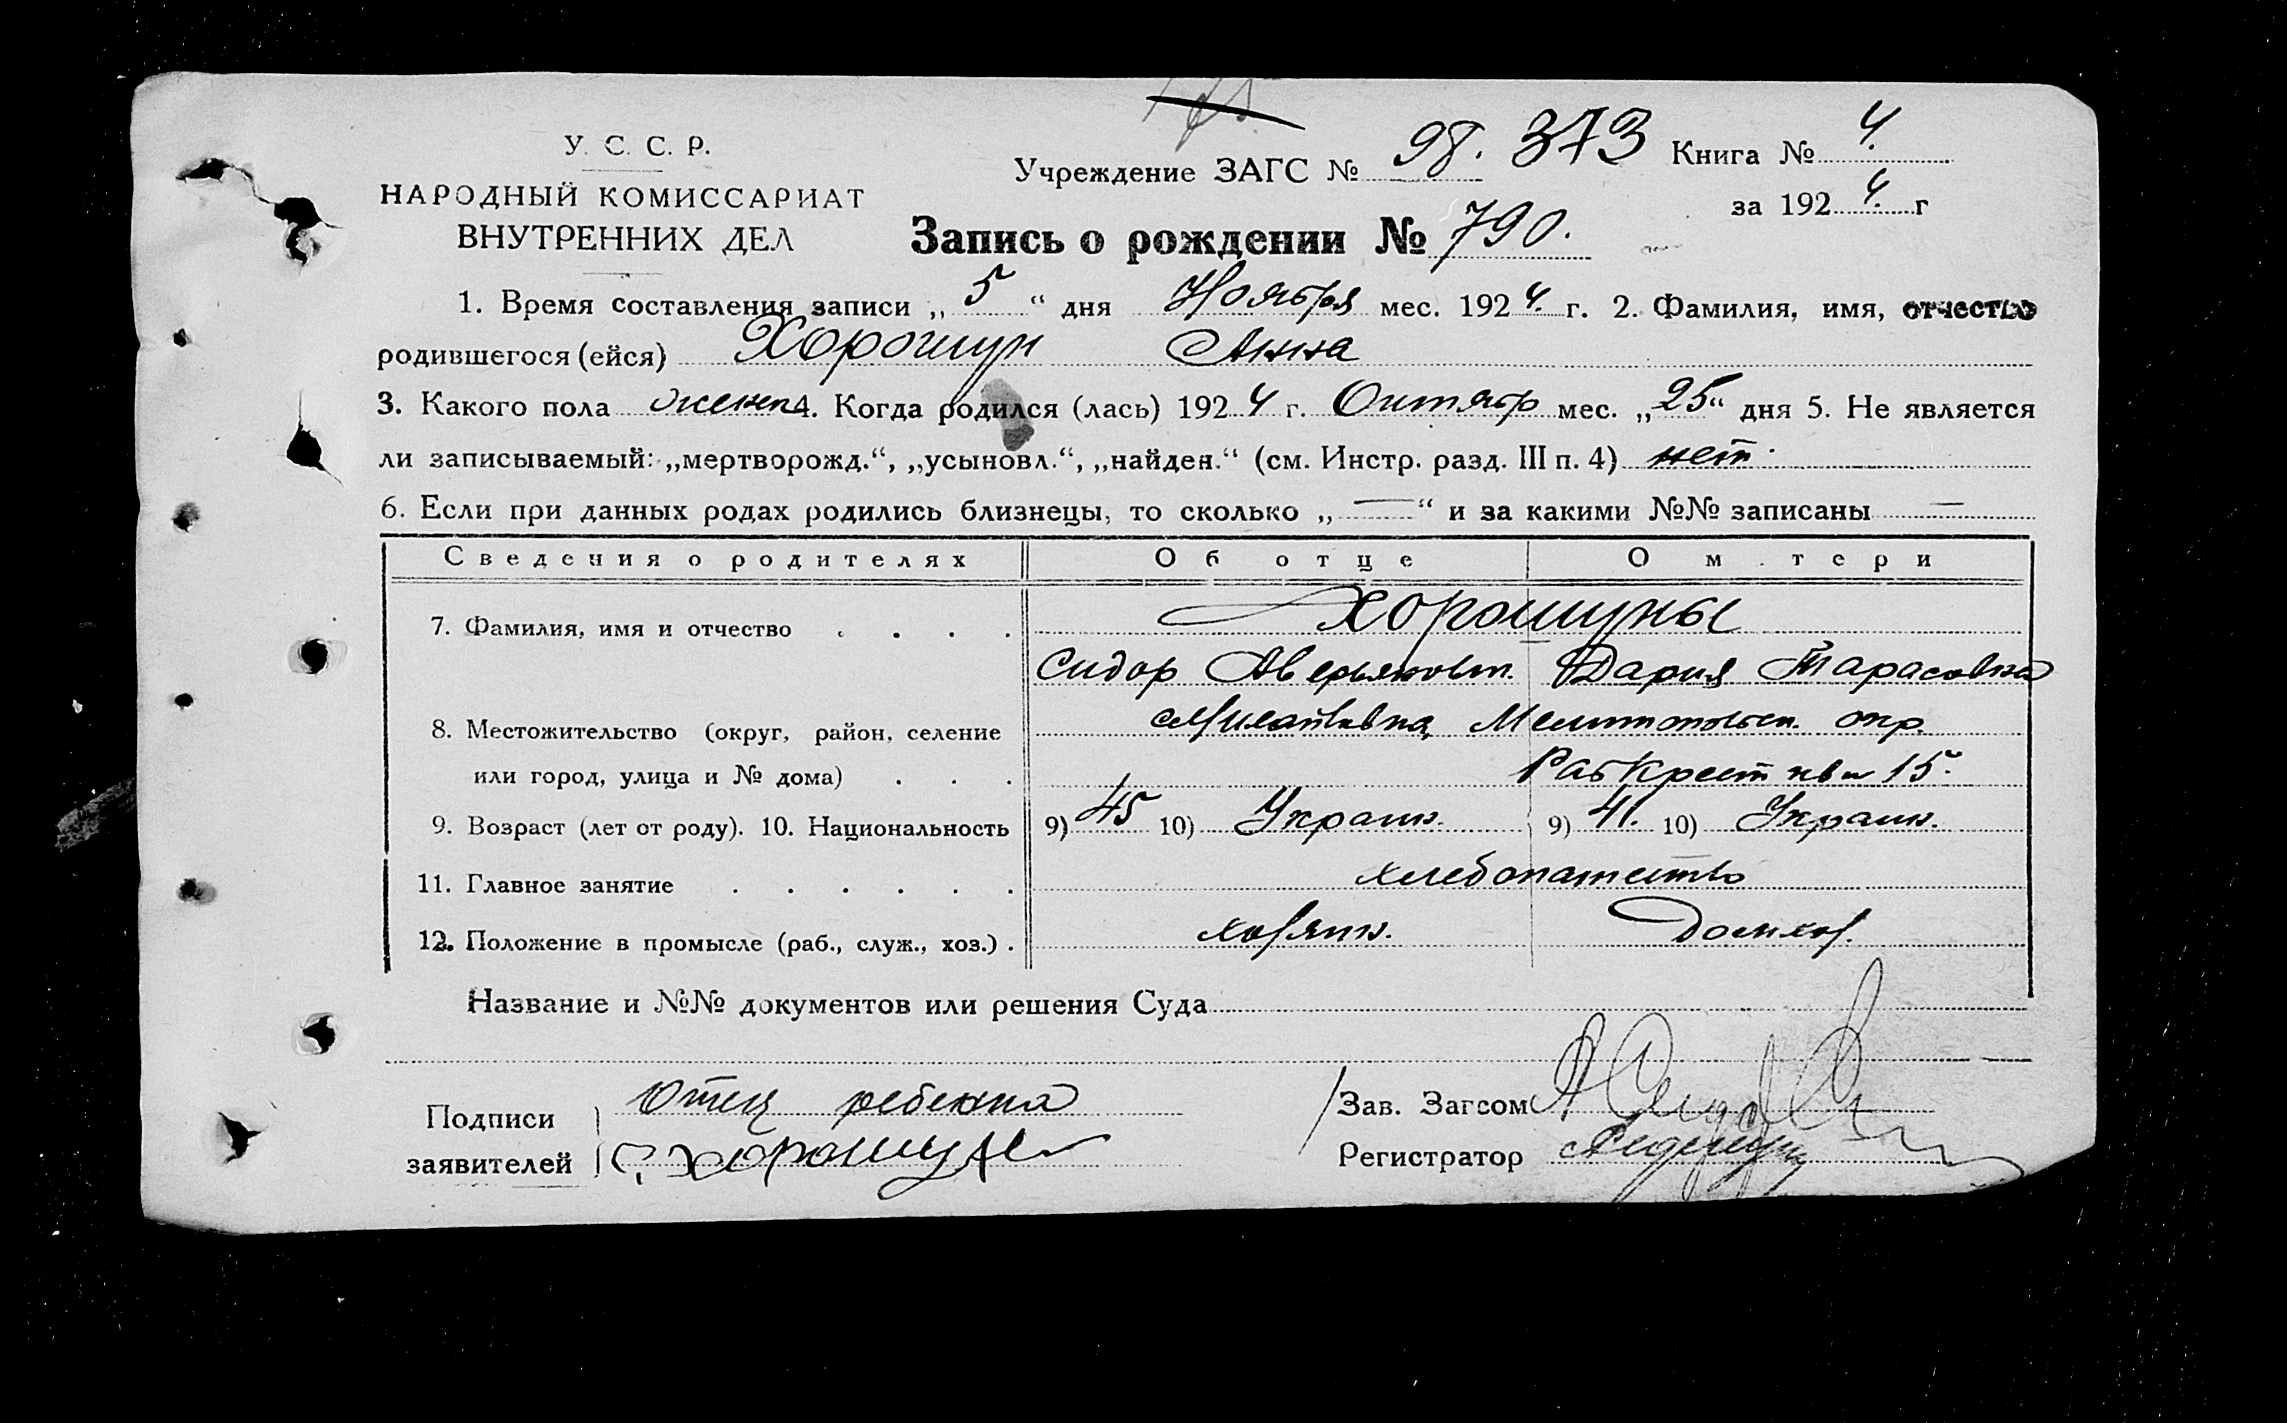 У. С. С. Р.
НАРОДНЫЙ КОМИССАРИАТ
ВНУТРЕННИХ ДЕЛ
Учреждение ЗАГС № 98. 373 Книга № 4.
за 1924. г
Запись о рождении № 790.
1. Время составления записи „5“ дня Ноября мес. 1924. г. 2. Фамилия, имя, отчество
родившегося (ейся) Хорошун Анна
3. Какого пола женск 4. Когда родился (лась) 1924 г. Октябр мес. „25“ дня 5. Не является
ли записываемый: „мертворожд.“, „усыновл.“, „найден.“ (см. Инстр. разд. III п. 4) нет.
6. Если при данных родах родились близнецы, то сколько „—“ и за какими №№ записаны —
Сведения о родителях Об отце О м тери
7. Фамилия, имя и отчество . . . . Хорошуны
Сидор Аверьянович. Дария Тарасовна
8. Местожительство (округ, район, селение Мелитопольск. окр.
или город, улица и № дома) . . . 15.
9. Возраст (лет от роду). 10. Национальность 9) 45 10) Украин. 9) 41. 10) Украин.
11. Главное занятие . . . . . . хлебопашество
12. Положение в промысле (раб., служ., хоз.) . хозяин. Домхоз.
Название и №№ документов или решения Суда
Подписи Отец ребенка
заявителей С. Хорошун
Зав. Загсом
Регистратор